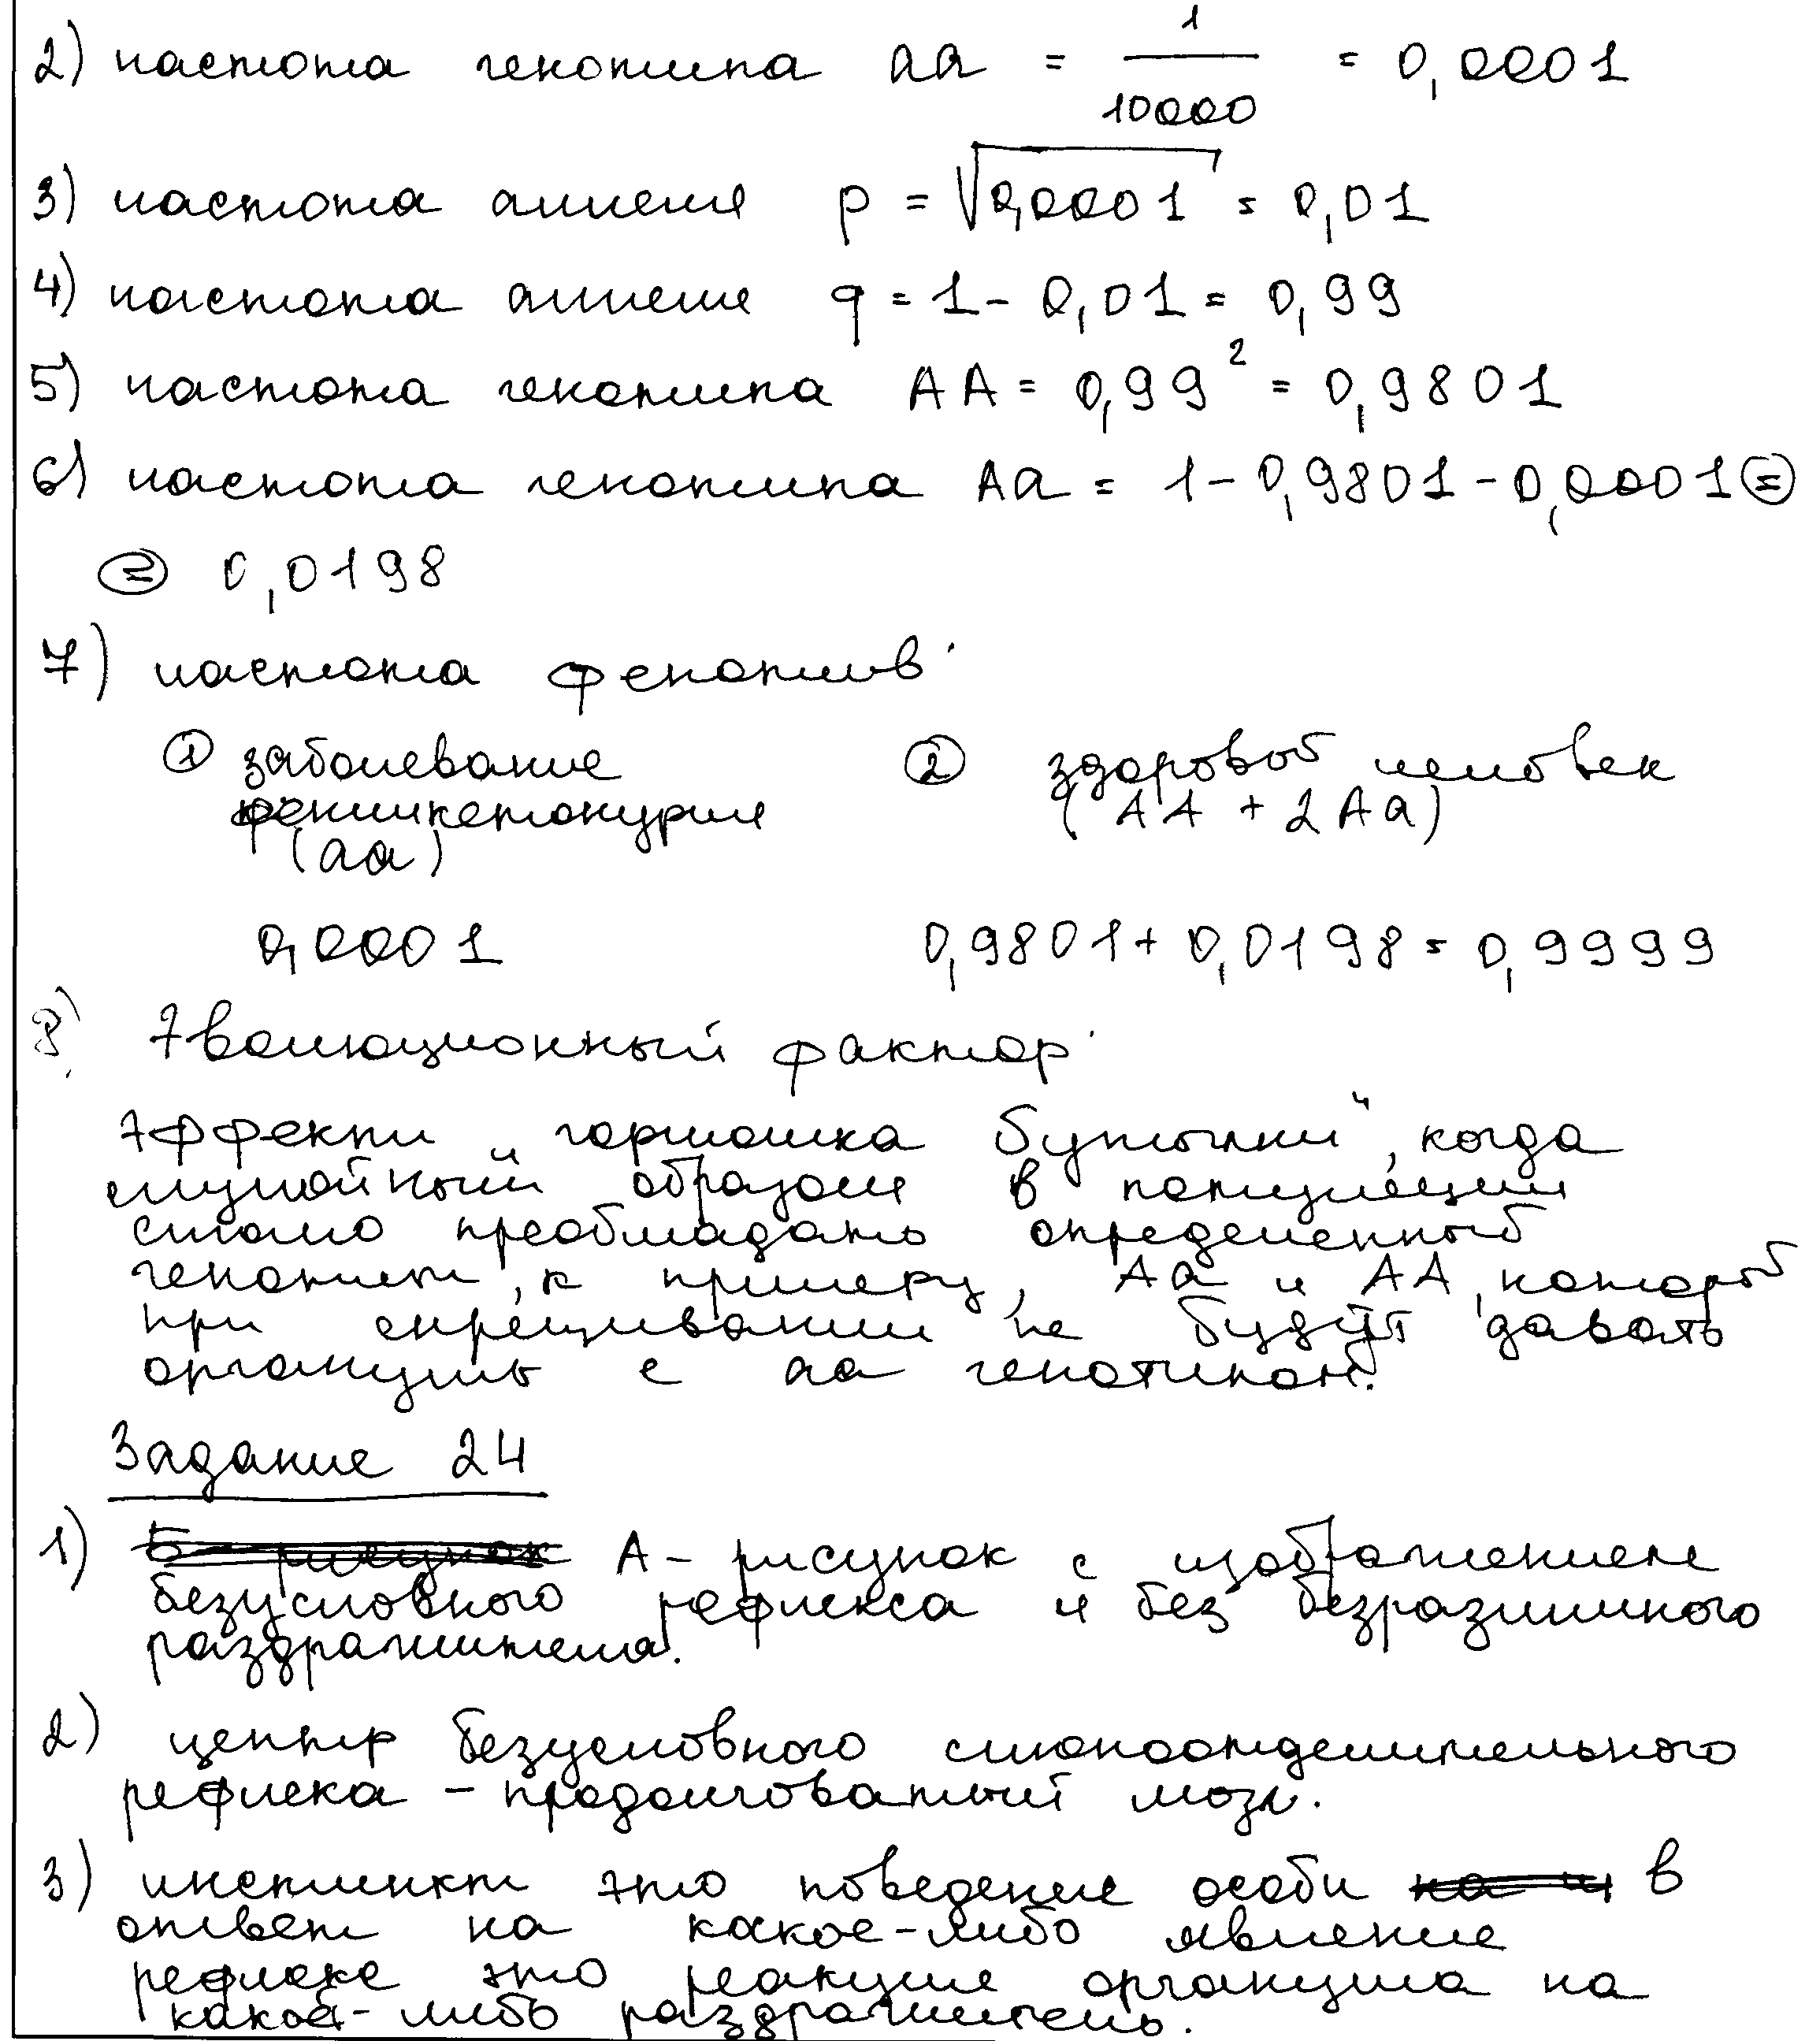 2) частота генотипа aa = 1/10000 = 0,0001
3) частота аллеля p = √0,0001 = 0,01
4) частота аллеля q = 1 - 0,01 = 0,99
5) частота генотипа AA = 0,99² = 0,9801
6) частота генотипа Aa = 1 - 0,9801 - 0,0001 =
= 0,0198
7) частота фенотипов:
① заболевание ② здоровой человек
фенилкетонурия (AA + 2Aa)
(aa)
0,0001 0,9801 + 0,0198 = 0,9999
8) Эволюционный фактор:
эффект "горлышка бутылки", когда
случайный образом в популяции
стало преобладать определенный
генотип, к примеру, Aa и AA, который
при скрещивании не будут давать
организмы с aa генотипом.
Задание 24
1) Б - рисунок А - рисунок с изображением
безусловного рефлекса и без безразличного
раздражителя.
2) центр безусловного слюноотделительного
рефлекса - продолговатый мозг.
3) инстинкт это поведение особи на в
ответ на какое-либо явление
рефлекс это реакция организма на
какой-либо раздражитель.